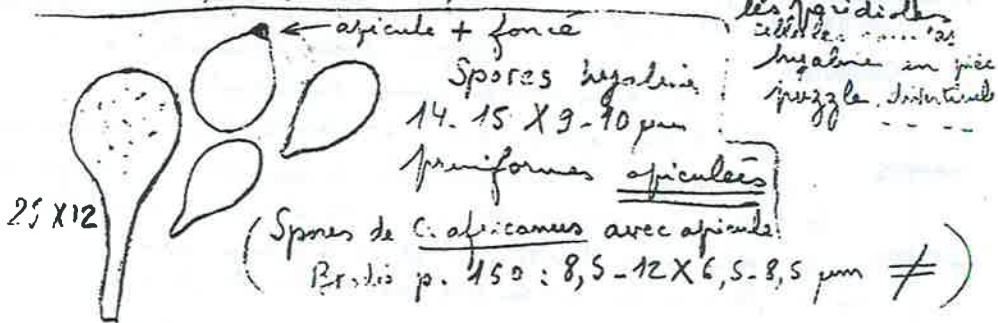 les péridioles
hyaline en pièce
puzzle
← apicule + foncé
Spores hyalines
14-15 X 9-10 µm
piriformes apiculées
25 X 12
(Spores de C. africanus avec apicule
p. 150 : 8,5-12 X 6,5-8,5 µm ≠)